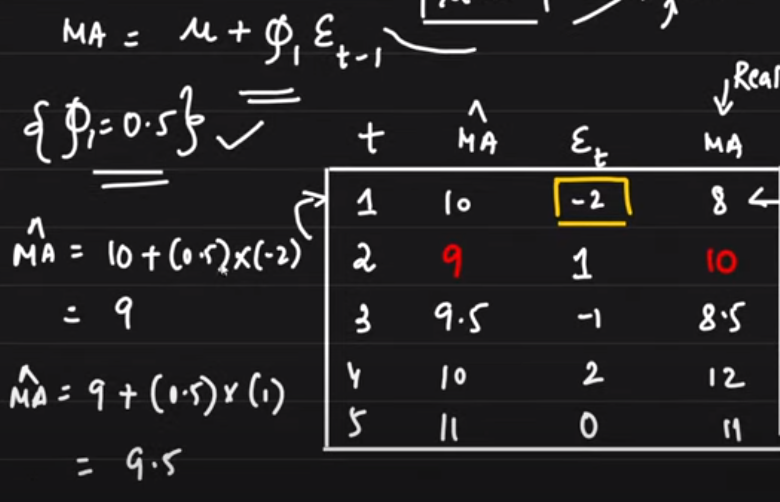 MA = μ + φ₁ ε_{t-1}
{φ₁ = 0.5} ✓
M̂A = 10 + (0.5)×(-2)
= 9
M̂A = 9 + (0.5)×(1)
= 9.5
Real
t M̂A ε_t MA
1 10 -2 8 ←
2 9 1 10
3 9.5 -1 8.5
4 10 2 12
5 11 0 11